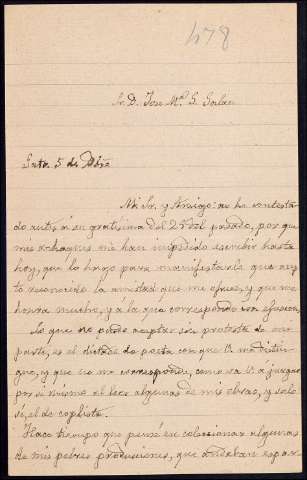 478
Sr. D. José Mª. G. Galán
5 de Dbre
Mi Sr. y Amigo: no he contesta-
do antes á su gratísima del 25 del pasado, porque
mis achaques me han impedido escribir hasta
hoy, que lo hago para manifestarle que acep-
to reconocido la amistad que me ofrece, y que me
honra mucho, y á la que correspondo con efusión.
Lo que no puedo aceptar sin protesta de mi
parte, es el dictado de poeta con que V. me distin-
gue, y que no me corresponde, como va V. a juzgar
por sí mismo al leer algunas de mis obras, y solo
sí, el de coplista.
Hace tiempo que pensé en coleccionar algunas
de mis pobres producciones, que andaban espar-